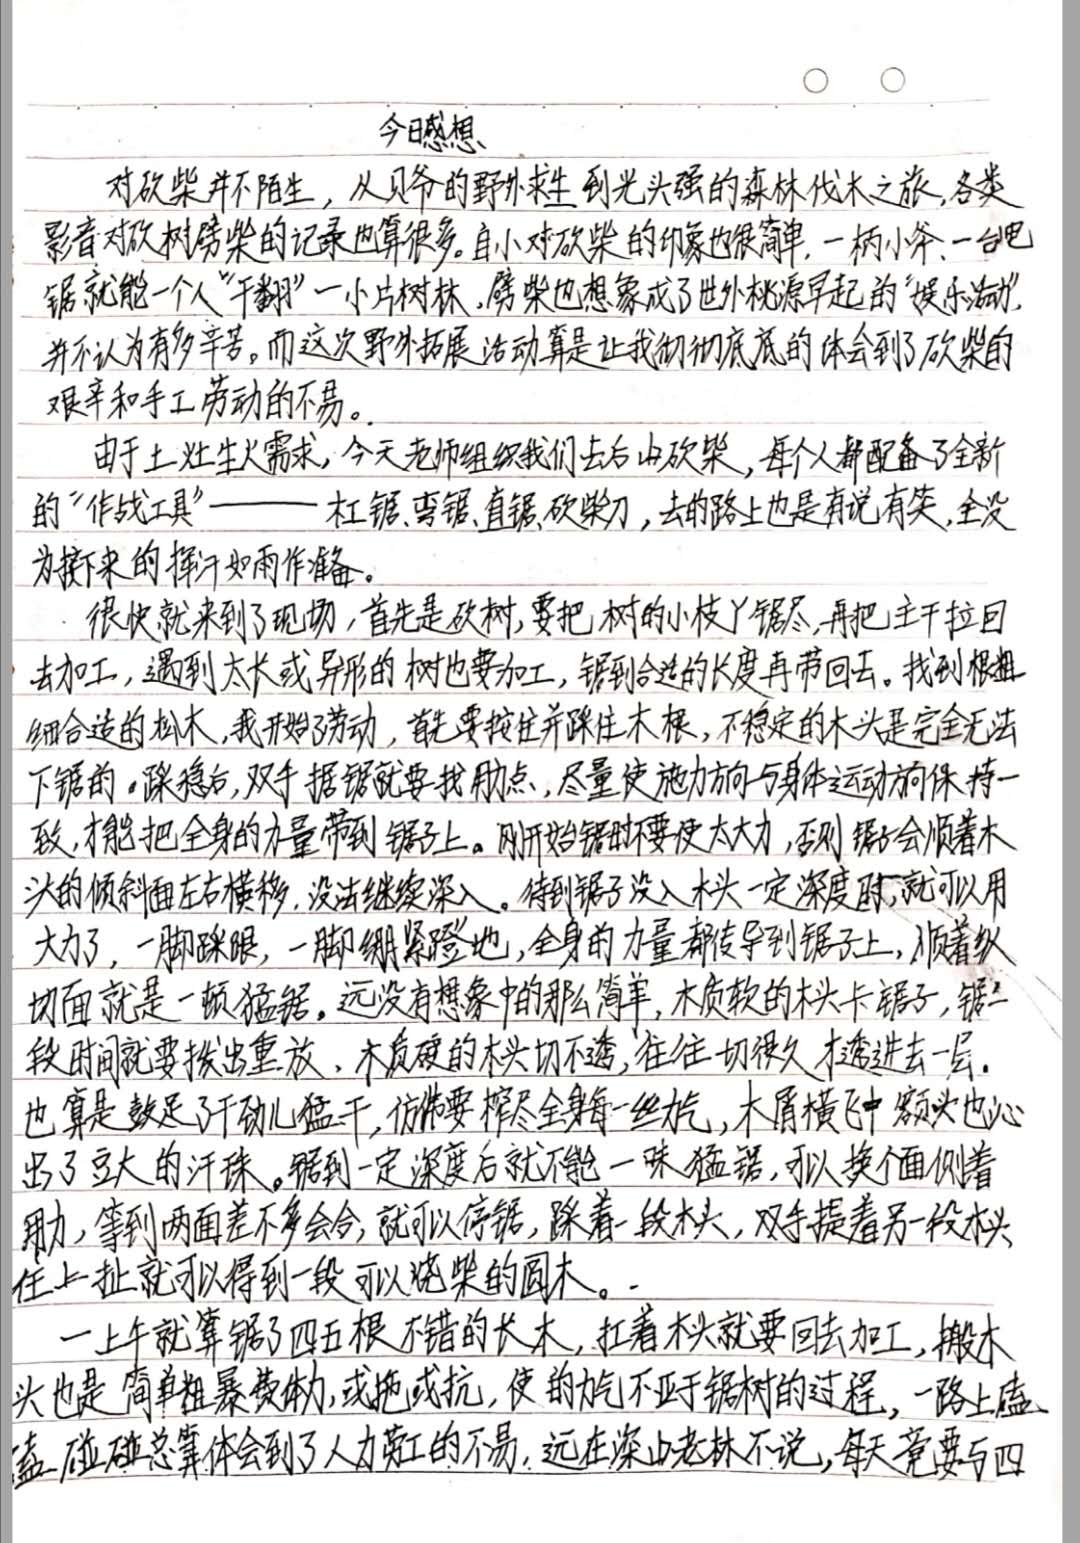 今日感想
对砍柴并不陌生，从贝爷的野外求生到光头强的森林伐木之旅，各类
影音对砍树劈柴的记录也算很多。自小对砍柴的印象也很简单，一柄小斧、一台电
锯就能一个人“干翻”一小片树林，劈柴也想象成了世外桃源早起的“娱乐活动”，
并不认为有多辛苦。而这次野外拓展活动算是让我彻彻底底的体会到了砍柴的
艰辛和手工劳动的不易。
由于土灶生火需求，今天老师组织我们去后山砍柴，每个人都配备了全新
的“作战工具”———杠锯、弯锯、直锯、砍柴刀，去的路上也是有说有笑，全没
为接下来的挥汗如雨作准备。
很快就来到了现场，首先是砍树，要把树的小枝丫锯尽，再把主干拉回
去加工，遇到太长或异形的树也要加工，锯到合适的长度再带回去。找到根粗
细合适的松木，我开始了劳动，首先要按住并踩住木根，不稳定的木头是完全无法
下锯的。踩稳后，双手据锯就要找用力点，尽量使施力方向与身体运动方向保持一
致，才能把全身的力量带到锯子上。刚开始锯时不要使太大力，否则锯子会顺着木
头的倾斜面左右横移，没法继续深入。待到锯子没入木头一定深度时，就可以用
大力了，一脚踩跟，一脚绷紧蹬地，全身的力量都传导到锯子上，顺着纵
切面就是一顿猛锯。远没有想象中的那么简单，木质软的木头卡锯子，锯一
段时间就要拔出重放，木质硬的木头切不透，往往一切很久才透进去一层。
也算是鼓足了干劲儿猛干，仿佛要榨尽全身每一丝力气，木屑横飞中额头也沁
出了豆大的汗珠。锯到一定深度后就不能一味猛锯，可以换个面侧着
用力，等到两面差不多会合，就可以停锯，踩着一段木头，双手提着另一段木头
往上一扯就可以得到一段可以烧柴的圆木。
一上午就算锯了四五根不错的长木，扛着木头就要回去加工，搬木
头也是简单粗暴费体力，或拖或抗，使的力气不亚于锯树的过程，一路上磕
磕碰碰总算体会到了人力劳工的不易，远在深山老林不说，每天竟要与四